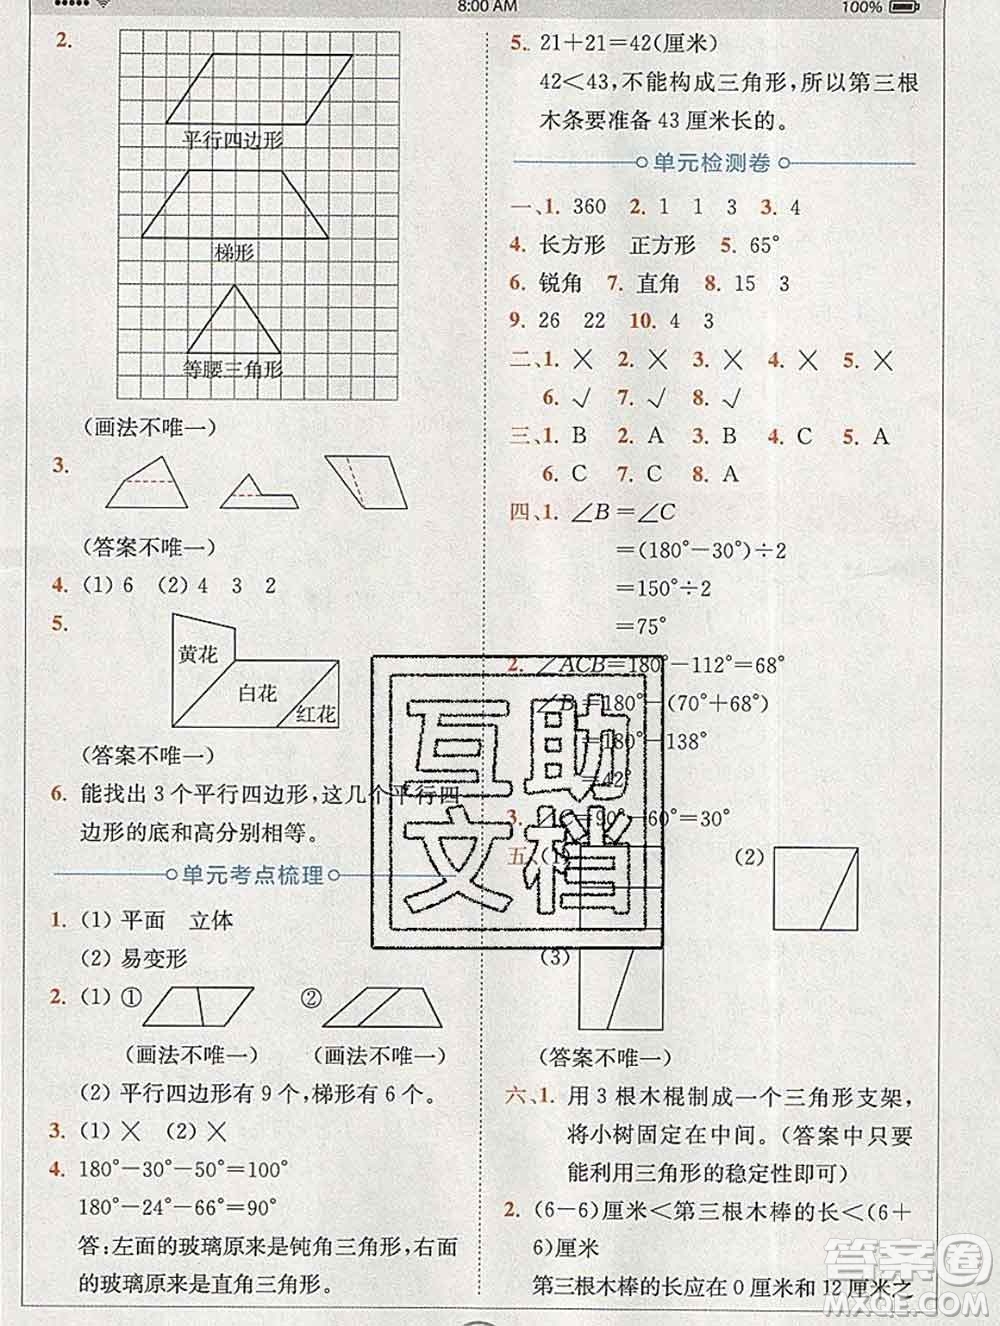 8:00 AM
100%
2.
平行四边形
梯形
等腰三角形
(画法不唯一)
3.
(答案不唯一)
4. (1) 6 (2) 4 3 2
5.
黄花
白花
红花
(答案不唯一)
6. 能找出 3 个平行四边形,这几个平行四
边形的底和高分别相等。
单元考点梳理
1. (1) 平面 立体
(2) 易变形
2. (1) ① ②
(画法不唯一) (画法不唯一)
(2) 平行四边形有 9 个,梯形有 6 个。
3. (1) ✕ (2) ✕
4. 180°－30°－50°＝100°
180°－24°－66°＝90°
答:左面的玻璃原来是钝角三角形,右面
的玻璃原来是直角三角形。
5. 21＋21＝42(厘米)
42＜43,不能构成三角形,所以第三根
木条要准备 43 厘米长的。
单元检测卷
一、1. 360 2. 1 1 3 3. 4
4. 长方形 正方形 5. 65°
6. 锐角 7. 直角 8. 15 3
9. 26 22 10. 4 3
二、1. ✕ 2. ✕ 3. ✕ 4. ✕ 5. ✕
6. √ 7. √ 8. √
三、1. B 2. A 3. B 4. C 5. A
6. C 7. C 8. A
四、1. ∠B＝∠C
＝(180°－30°)÷2
＝150°÷2
＝75°
2. ∠ACB＝180°－112°＝68°
∠B＝180°－(70°＋68°)
＝180°－138°
＝42°
3. ∠C＝90°－60°＝30°
五、(1) (2)
(3)
(答案不唯一)
六、1. 用 3 根木棍制成一个三角形支架,
将小树固定在中间。(答案中只要
能利用三角形的稳定性即可)
2. (6－6)厘米＜第三根木棒的长＜(6＋
6)厘米
第三根木棒的长应在 0 厘米和 12 厘米之
互助
文档
答案圈
MXQE.COM